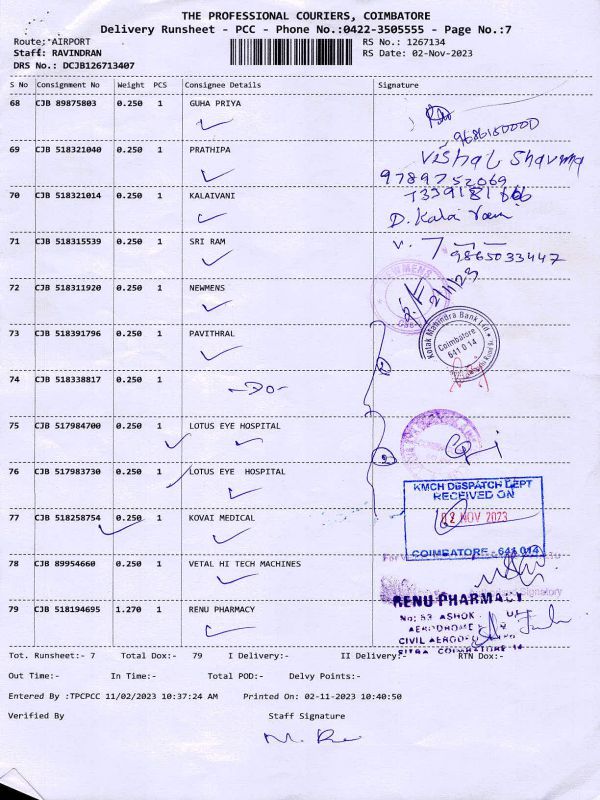 THE PROFESSIONAL COURIERS, COIMBATORE
Delivery Runsheet - PCC - Phone No.:0422-3505555 - Page No.:7
Route: AIRPORT RS No.: 1267134
Staff: RAVINDRAN RS Date: 02-Nov-2023
DRS No.: DCJB126713407
S No Consignment No Weight PCS Consignee Details Signature
68 CJB 89875803 0.250 1 GUHA PRIYA
9686150000
69 CJB 518321040 0.250 1 PRATHIPA Vishal Sharma
9789752069
70 CJB 518321014 0.250 1 KALAIVANI
D. Kalai
71 CJB 518315539 0.250 1 SRI RAM
9865033447
72 CJB 518311920 0.250 1 NEWMENS NEWMENS
2/11/23
73 CJB 518391796 0.250 1 PAVITHRAL Kotak Mahindra Bank Ltd
Coimbatore
641 014
74 CJB 518338817 0.250 1 -Do-
75 CJB 517984700 0.250 1 LOTUS EYE HOSPITAL
76 CJB 517983730 0.250 1 LOTUS EYE HOSPITAL
KMCH DESPATCH DEPT
RECEIVED ON
77 CJB 518258754 0.250 1 KOVAI MEDICAL 02 NOV 2023
COIMBATORE - 641 014
78 CJB 89954660 0.250 1 VETAL HI TECH MACHINES
79 CJB 518194695 1.270 1 RENU PHARMACY RENU PHARMACY
No: 53 ASHOK
AERODHOME
CIVIL AERODROME
SITRA COIMBATORE-14
Tot. Runsheet:- 7 Total Dox:- 79 I Delivery:- II Delivery:- RTN Dox:-
Out Time:- In Time:- Total POD:- Delvy Points:-
Entered By :TPCPCC 11/02/2023 10:37:24 AM Printed On: 02-11-2023 10:40:50
Verified By Staff Signature